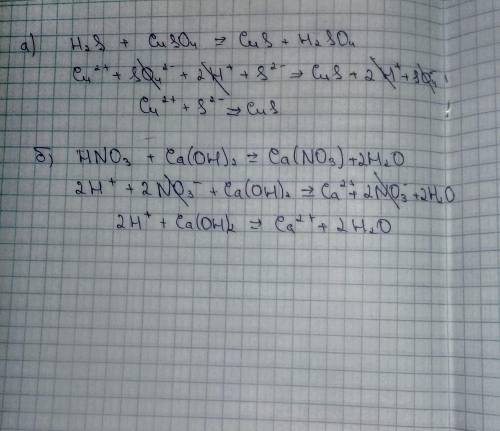 а) H₂S + CuSO₄ ⇒ CuS + H₂SO₄
Cu²⁺ + SO₄²⁻ + 2H⁺ + S²⁻ ⇒ CuS + 2H⁺ + SO₄
Cu²⁺ + S²⁻ ⇒ CuS
б) HNO₃ + Ca(OH)₂ ⇒ Ca(NO₃) + 2H₂O
2H⁺ + 2NO₃⁻ + Ca(OH)₂ ⇒ Ca²⁺ + 2NO₃⁻ + 2H₂O
2H⁺ + Ca(OH)₂ ⇒ Ca²⁺ + 2H₂O